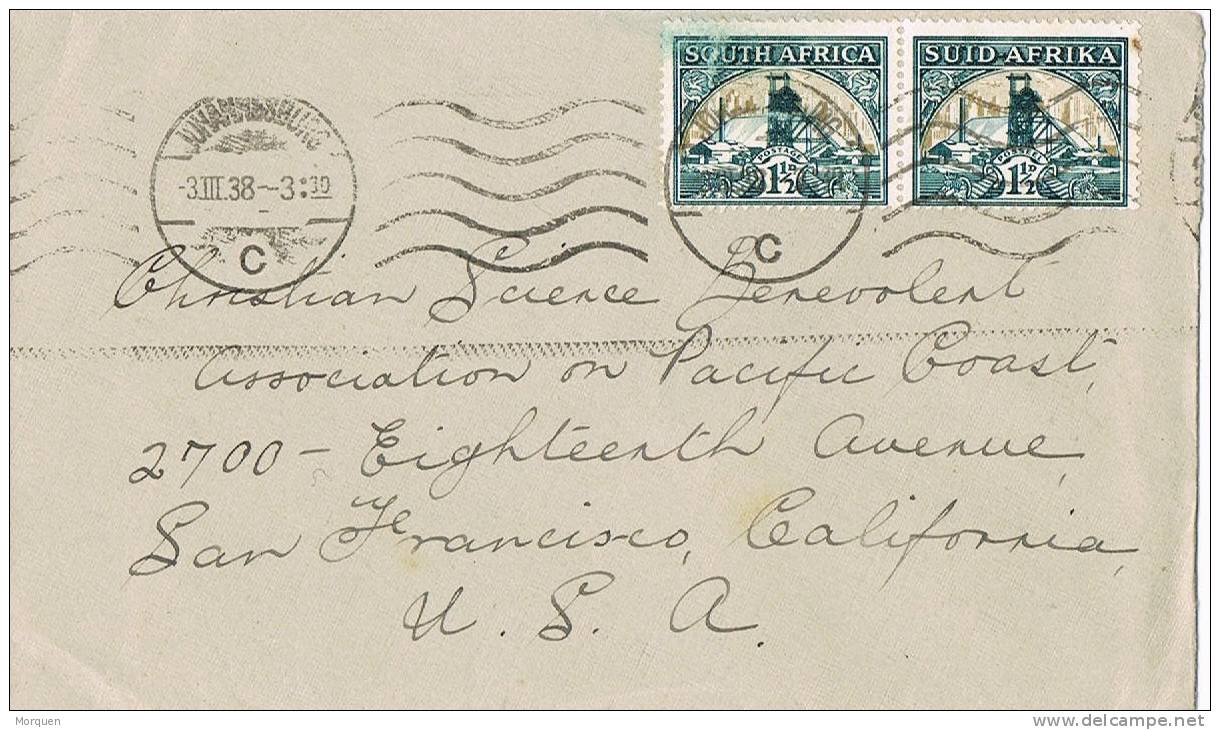 SOUTH AFRICA SUID-AFRIKA
POSTAGE
1½D 1½D
JOHANNESBURG
-3.III.38-3:30
C C
Christian Science Benevolent
Association on Pacific Coast,
2700 - Eighteenth Avenue,
San Francisco, California,
U. S. A.
Morquen
www.delcampe.net